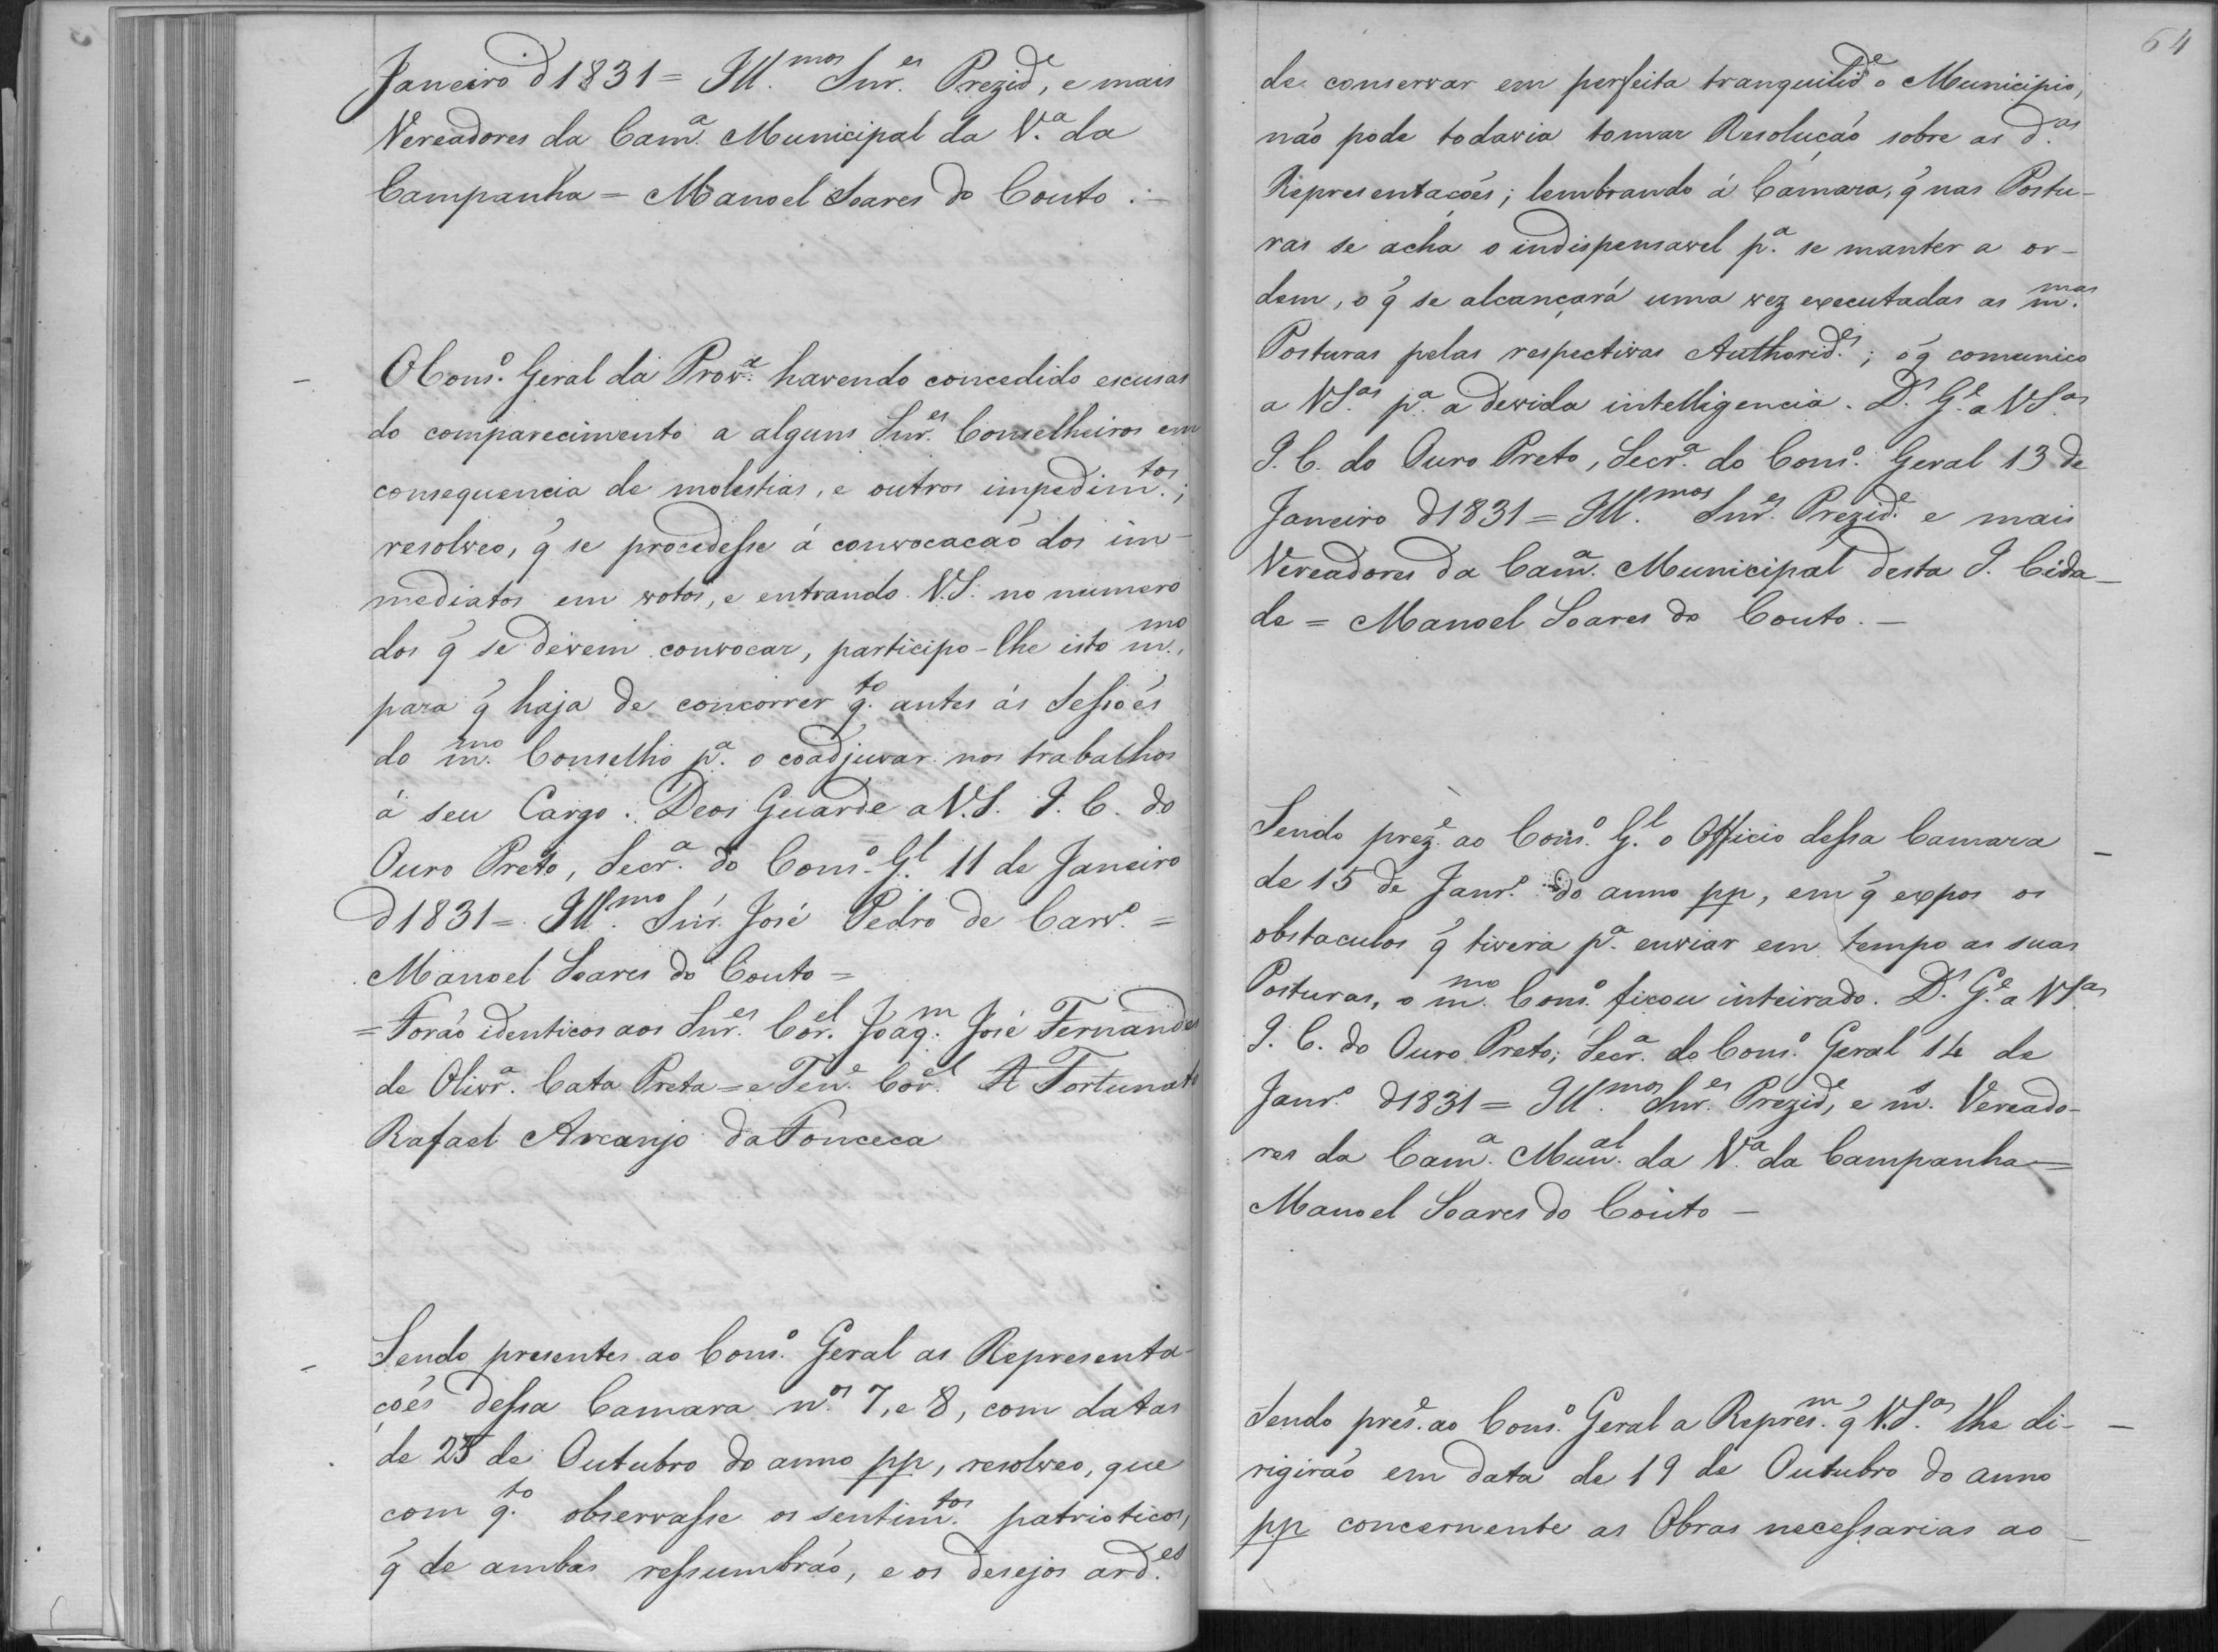 Janeiro d 1831 = Ill.mos Snr.es Prezid.e, e mais
Vereadores da Cam.a Municipal da V.a da
Campanha = Manoel Soares do Couto :-
O Cons.o Geral da Prov.a havendo concedido escusas
do comparecimento a alguns Snr.es Conselheiros em
consequencia de molestias, e outros impedim.tos;
resolveo, q̃ se procedesse á convocação dos im-
mediatos em votos, e entrando V.S. no numero
dos q̃ se devem convocar, participo-lhe isto m.mo,
para q̃ haja de concorrer q.to antes ás Sessões
do m.mo Conselho p.a o coadjuvar nos trabalhos
á seu Cargo. Deos Guarde a V.S. I. C. do
Ouro Preto, Secr.a do Cons.o G.l 11 de Janeiro
d 1831 = Ill.mo Snr. José Pedro de Carv.o =
Manoel Soares do Couto =
= Forão identicos aos Snr.es Cor.el Joaq.m José Fernandes
de Olivr.a Cata Preta = e Ten.e Cor.el Fortunato
Rafael Arcanjo da Fonceca
Sendo presentes ao Cons.o Geral as Representa-
ções dessa Camara n.os 7, e 8, com datas
de 25 de Outubro do anno pp, resolveo, que
com q.to observasse os sentim.tos patrioticos,
q̃ de ambas ressumbrão, e os desejos ard.es
64
de conservar em perfeita tranquilid.e o Municipio,
não pode todavia tomar Resolução sobre as d.as
Representações; lembrando á Câmara, q̃ nas Postu-
ras se acha o indispensavel p.a se manter a or-
dem, o q̃ se alcançará uma vez executadas as m.mas
Posturas pelas respectivas Authorid.es; o q̃ comunico
a VS.as p.a a devida intelligencia. D.s G.e a VS.as
I. C. do Ouro Preto, Secr.a do Cons.o Geral 13 de
Janeiro d 1831 = Ill.mos Snr.es Prezid.e e mais
Vereadores da Cam.a Municipal desta I. Cida-
de = Manoel Soares do Couto. -
Sendo prez.e ao Cons.o G.l o Officio dessa Camara
de 15 de Janr.o do anno pp, em q̃ expos os
obstaculos q̃ tivera p.a enviar em tempo as suas
Posturas, o m.mo Cons.o ficou inteirado. D.s G.e a VS.as
I. C. do Ouro Preto, Secr.a do Cons.o Geral 14 de
Janr.o d 1831 = Ill.mos Snr.es Prezid.e, e m.s Vereado-
res da Cam.a Mun.al da V.a da Campanha =
Manoel Soares do Couto -
Sendo pres.e ao Cons.o Geral a Repres.m q̃ V.S.as lhe di-
rigirão em data de 19 de Outubro do anno
pp concernente as Obras necessarias ao